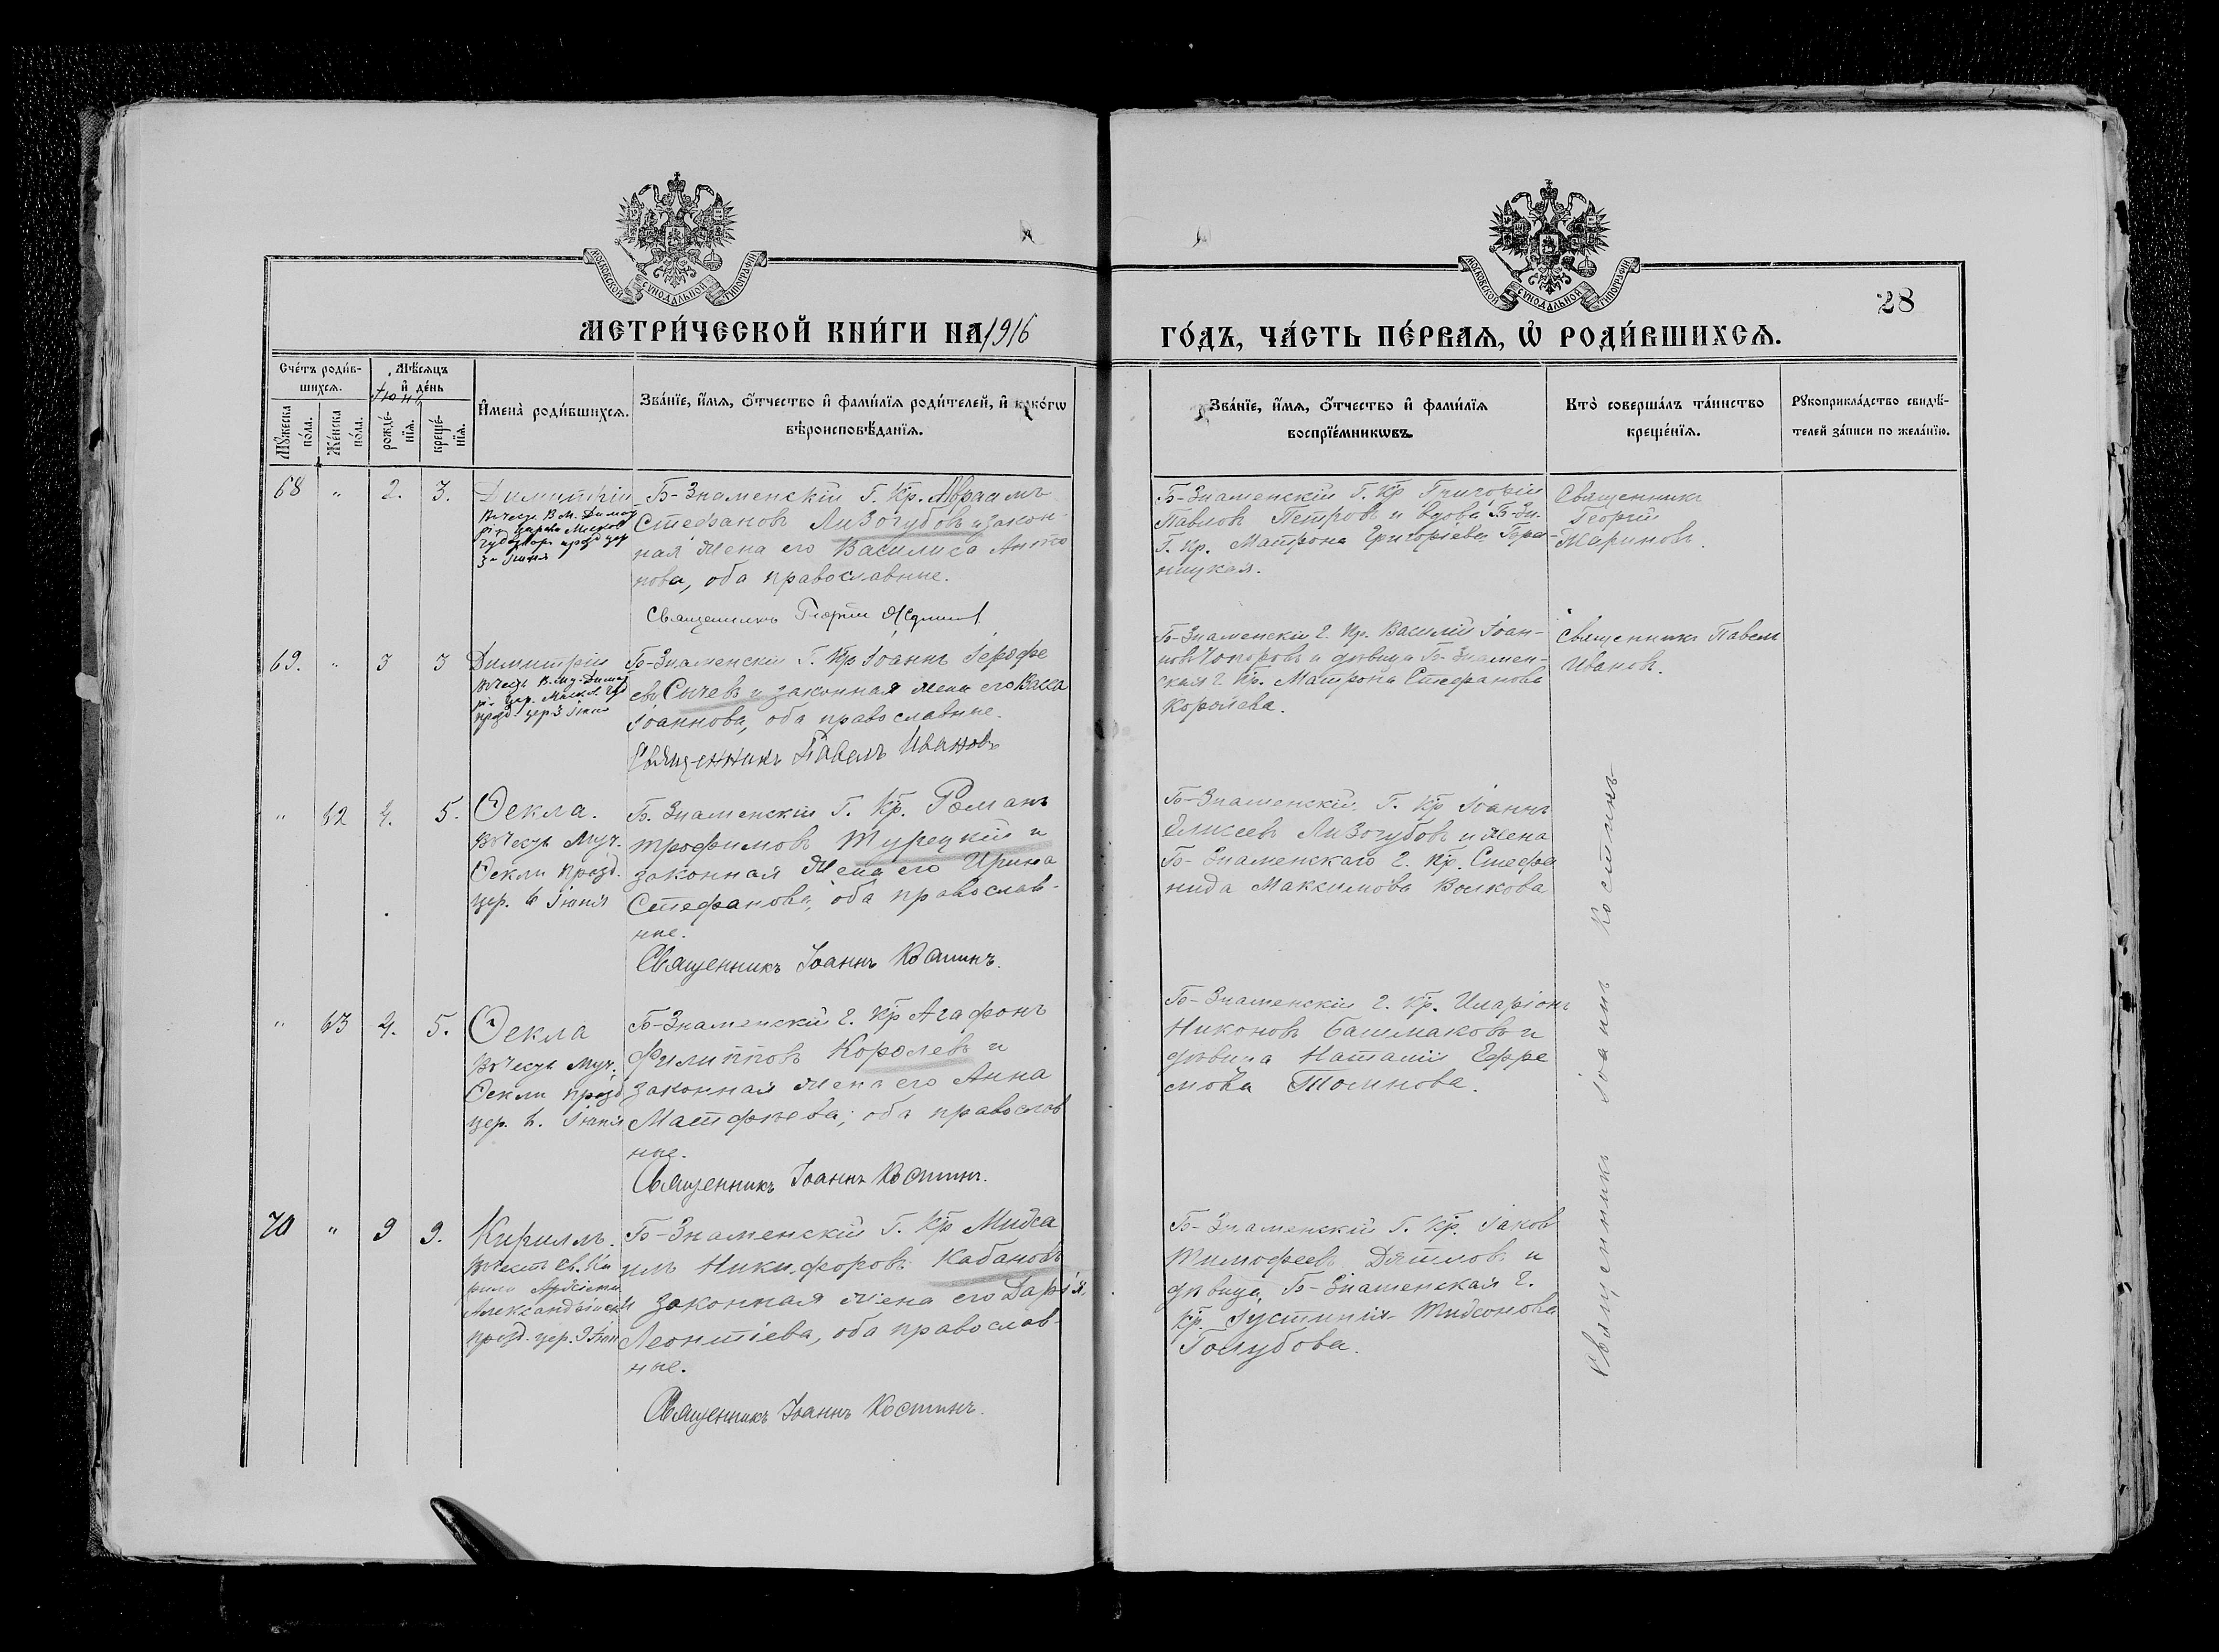 МОСКОВСКОЙ СѴНОДАЛЬНОЙ ТИПОГРАФІИ
МОСКОВСКОЙ СѴНОДАЛЬНОЙ ТИПОГРАФІИ
28
МЕТРИ́ЧЕСКОЙ КНИ́ГИ НА 1916
ГО́ДЪ, ЧА́СТЬ ПЕ́РВАѦ, Ѡ҆ РОДИ́ВШИХСѦ.
Сче́тъ роди́в-
шихсѧ.
Мꙋ́жеска по́ла.
Же́нска по́ла.
Мѣ́сѧцъ
и҆ де́нь
Іюнь
рожде́-нїѧ.
креще́-нїѧ.
И҆мена̀ роди́вшихсѧ.
Зва́нїе, и҆́мѧ, ѻ҆́тчество и҆ фами́лїѧ роди́телей, и҆ како́гѡ
вѣроисповѣ́данїѧ.
Зва́нїе, и҆́мѧ, ѻ҆́тчество и҆ фами́лїѧ
воспрїе́мникѡвъ.
Кто̀ соверша́лъ та́инство
креще́нїѧ.
Рꙋкоприкла́дство свидѣ́-
телей за́писи по жела́нїю.
68 " 2. 3.
Димитрій
въ честь В. М. Димит
3го Іюня
Б-Знаменскій Г. Кр. Авраамъ
Стефановъ Лизогубовъ и закон-
ная жена его Василиса Анто
нова, оба православные.
Священникъ Георгій
Б-Знаменскій Г. Кр Григорій
Павловъ Петровъ и вдова Б-Зн.
Г. Кр. Матрона Григоріева
ницкая.
Священникъ
Георгій
69. " 3 3
Димитрій
Б-Знаменскій Г. Кр Іоаннъ Іерофе
евъ Сычевъ и законная жена его Васса
Іоаннова, оба православные.
Священникъ Павелъ Ивановъ
Б-Знаменскій г. Кр. Василій Іоан-
новъ и дѣвица Б-Знамен-
ская г. Кр. Матрона Стефанова
Королева.
Священникъ Павелъ
Ивановъ.
" 62 4. 5.
Ѳекла.
въ честь Муч.
Ѳеклы празд.
цер. 6 Іюня
Б. Знаменскій Г. Кр. Романъ
Трофимовъ Турецкій и
законная жена его Ирина
Стефанова, оба православ-
ные.
Священникъ Іоаннъ Костинъ.
Б-Знаменскій Г. Кр Іоаннъ
Елисеевъ Лизогубовъ и жена
Б-Знаменскаго г. Кр. Стефа
нида Максимова Волкова
" 63 4. 5.
Ѳекла
въ честь Муч.
Ѳеклы празд
цер. 6. Іюня
Б-Знаменскій г. Кр Агафонъ
Филипповъ Королевъ и
законная жена его Анна
Матфѣева; оба православ
ные.
Священникъ Іоаннъ Костинъ.
Б-Знаменскій г. Кр. Иларіонъ
Никоновъ Башмаковъ и
дѣвица Наталія Ефре
мова
70 " 9 9.
Кириллъ.
въ честь Св. Ки
рила Архіепи
Александрійск
празд. цер. 9 Іюн
Б-Знаменскій Г. Кр Миха
илъ Никифоровъ Кабановъ
и законная жена его Дарія
Леонтіева, оба православ-
ные.
Священникъ Іоаннъ Костинъ.
Б-Знаменскій Г. Кр. Іаковъ
Тимофеевъ Дятловъ и
дѣвица, Б-Знаменская г.
Кр. Іустинія
Голубова.
Священникъ Іоаннъ Костинъ